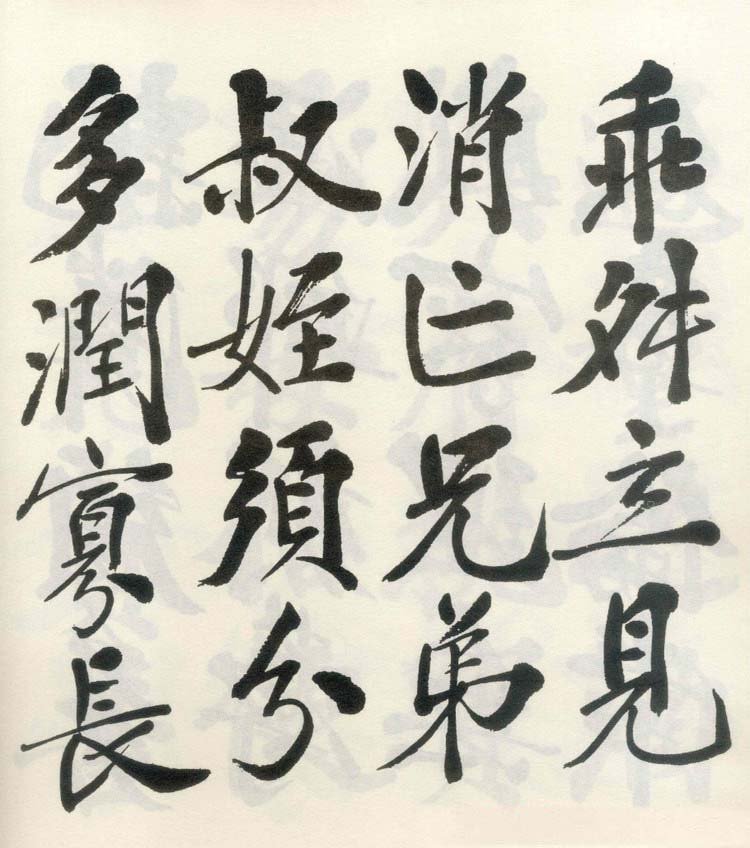 乖舛立見
消亡兄弟
叔姪須分
多潤寡長